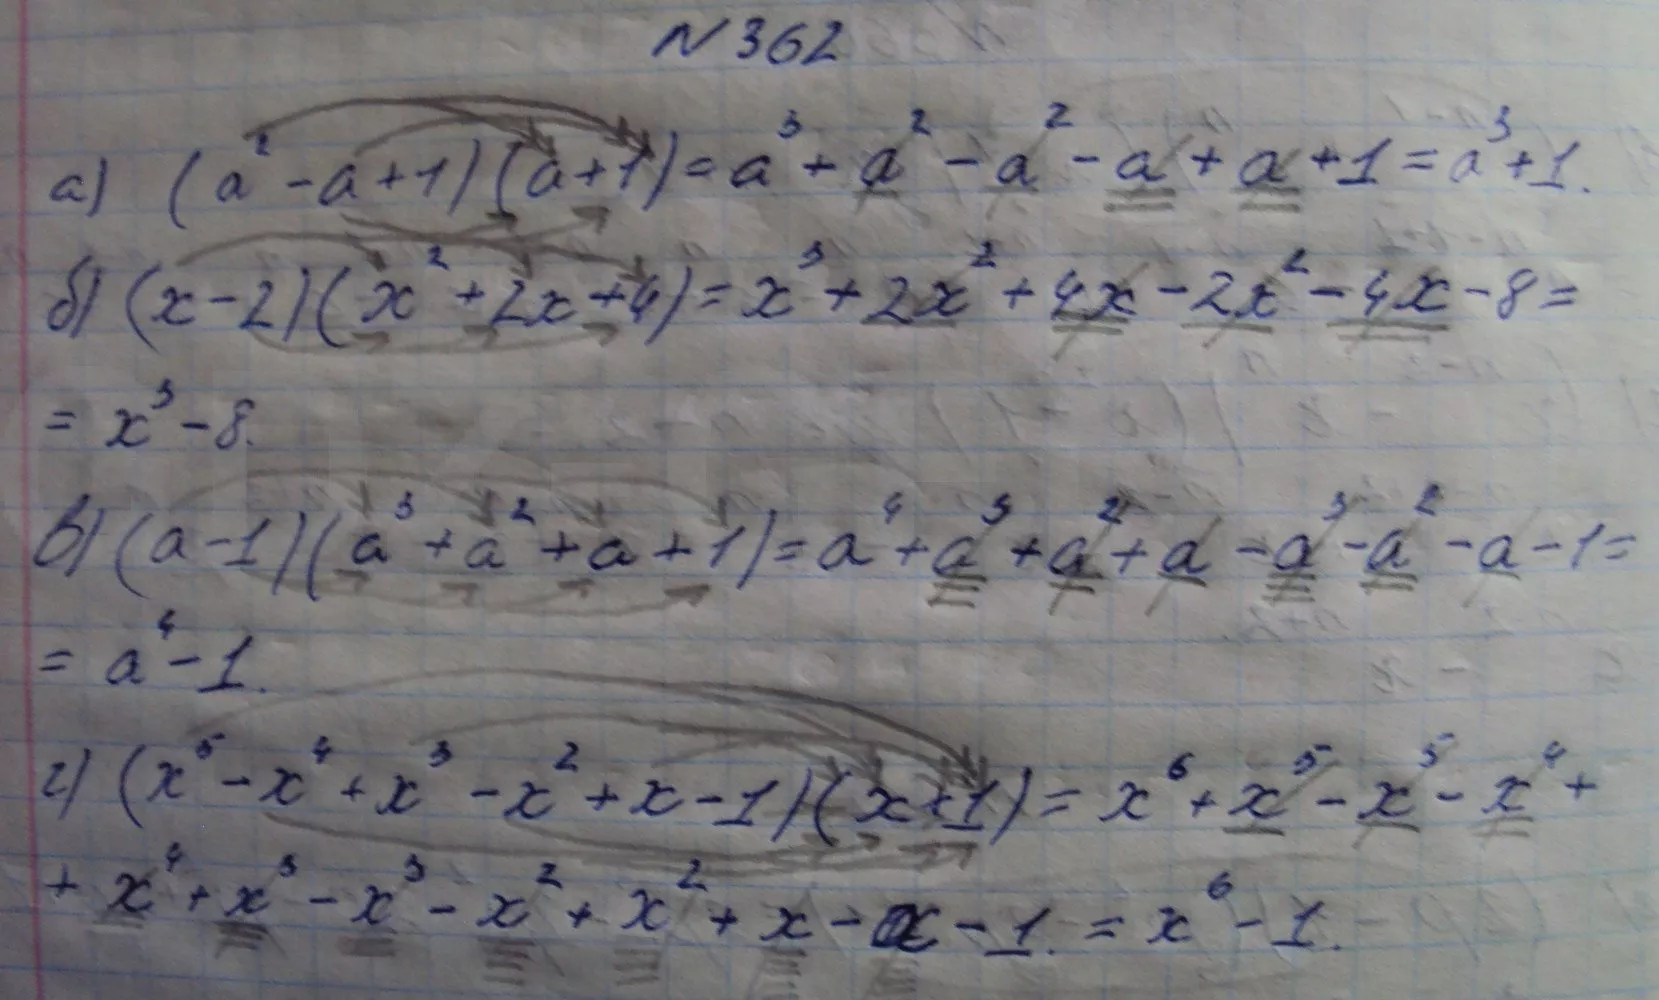 N 362
а) (a² - a + 1)(a + 1) = a³ + a² - a² - a + a + 1 = a³ + 1.
б) (x - 2)(x² + 2x + 4) = x³ + 2x² + 4x - 2x² - 4x - 8 =
= x³ - 8.
в) (a - 1)(a³ + a² + a + 1) = a⁴ + a³ + a² + a - a³ - a² - a - 1 =
= a⁴ - 1.
г) (x⁵ - x⁴ + x³ - x² + x - 1)(x + 1) = x⁶ + x⁵ - x⁵ - x⁴ +
+ x⁴ + x³ - x³ - x² + x² + x - x - 1. = x⁶ - 1.